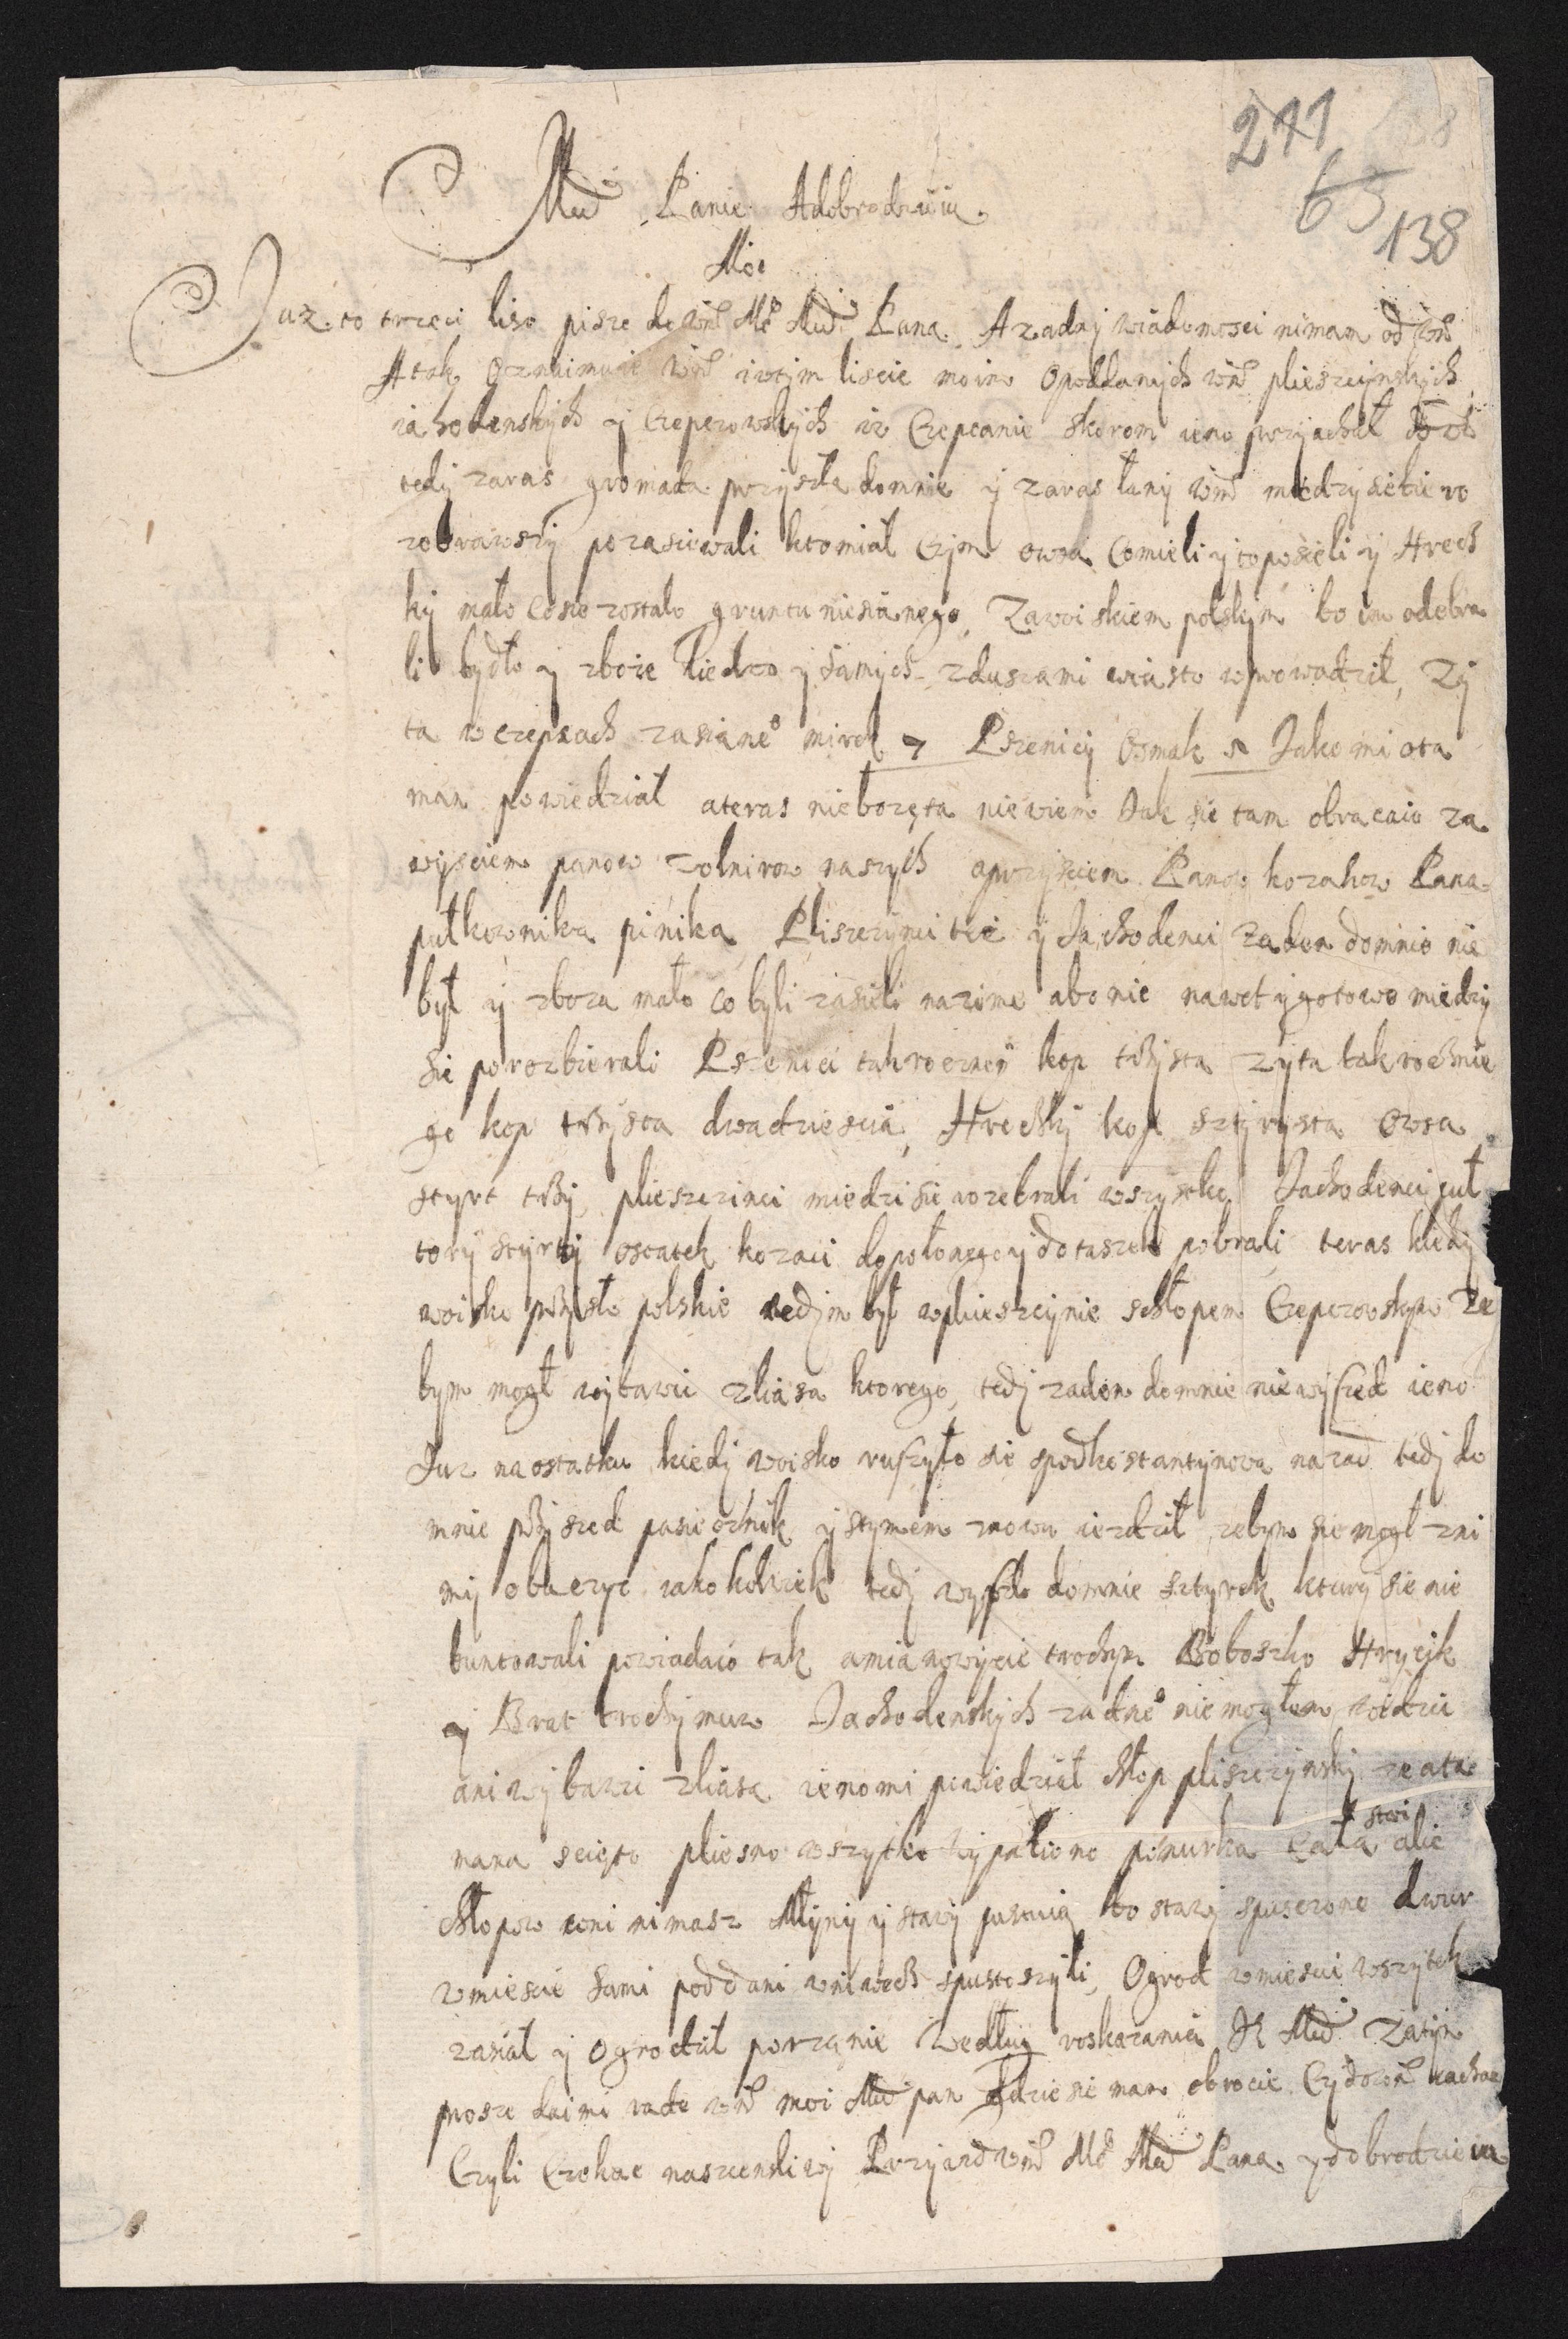 241
65
138
Mwd Panie Adobrodzieiu
Moi
Juz to trzeci list pisze do wm Me Mwd Pana A zadny wiadomosci nimam od wm
Atak Oznaimuie wm iwtym liscie moim Opoddanych wm plieszczynskych
iahodenskych y Czepczowskych iz Czepcanie skorom ieno przyachał
tedy zaras gromada przyszła domnie y zaras łany wm miedzy siebie ro
zobrawszy pozasiewali ktomiał Czym owsa Comieli y to posieli y Hrech
ky mało Cosie zostało gruntu niesianego, Zawoiskiem polskym bo im odebra
li bydło y zboże Liedzo y samych zduszami wiasto wprowadził, Zy
ta w czepcach zasiane° mirek 7 Pszenicy Osmak Jako mi ota
man powiedział ateras nieboręta niewiem Jak sie tam obracaio za
wysciem panow zołnirow naszych aprzysciem Panow kozakow Pana
pułkownika pinika Pliszczynci tie y Jachodenci Zaden domnie nie
był y zboza mało co byli zasieli nazime abo nie nawet y gotowo miedzy
sie porozbierali Pszenici takroczney kop trzysta zyta takrocznie
go kop trzysta dwadziescia, Hreczky kop sztyrysta Owsa
styrt trzy plieszczinci miedzi sie rozebrali wszystko Jachodenci puł
tory styrty ostatek kozaci dopołonego y do taszek pobrali teras kiedy
woisko przyszło polskie tedym był wplieszczynie schłopem Czepczowskym Ze
bym mogł wybawic zliasa ktorego, tedy zaden domnie niewyszed ieno
Juz na ostatku kiedy woisko ruszyło sie spodkostantynowa nazad tedy do
mnie przyszed pasiecznik y stymem znowu iezdził zebym sie mogł zni
my obaczyc iakokolwiek tedy wyszło domnie sztyrek ktury sie nie
buntowali powiadaio tak amianowycie trochym Boboszko Hrycik
y Brat trochymuw Jachodenskych zadne° niemogłem widziec
ani wybawic zliasa ienomi powiedział chłop pliszczynsky ze ata
mana scięto pliesno wszytko wypaliono pinurka Cała stoi alie
chłopow wni nimasz Młyny y stawy pustuią bo stawy spuszczono dwur
wmiescie sami poddani wniwecz spustoszyli, Ogrod wmiesci wszytek
zasiał y Ogrodził porzonie Według roskazania Je Mwd Zatym
prosze daimi rade wm moi Mwd pan gdzie sie mam obrocic Czy dowm iachac
Czyli Czekac naszczensliwy Przyazd wm Me Mwd Pana y dobrodzieia